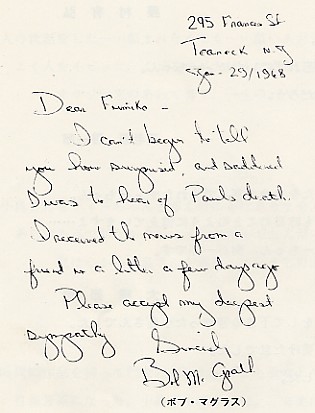 295 Frances St
Teaneck N.J
Jan - 29/1968
Dear Fumiko -
I can't begin to tell
you how surprised, and saddened
I was to hear of Pauls death.
I received the news from a
friend in a letter a few days ago
Please accept my deepest
sympathy
Sincerely,
Bob McGrath
(ボブ・マグラス)